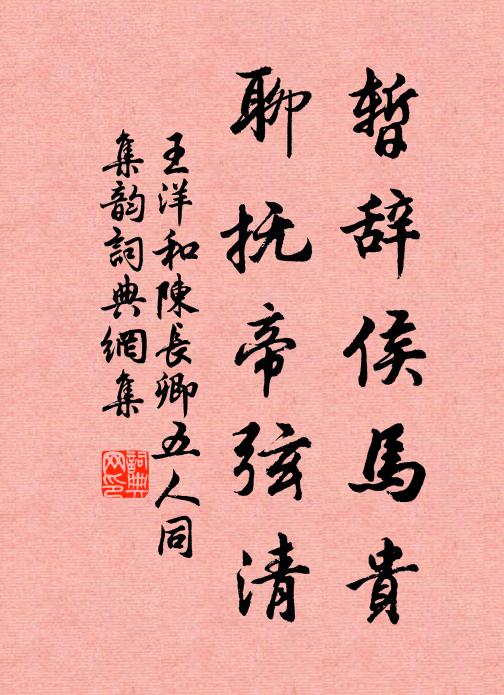 暫辞侯馬貴
聊抚帝弦清
王洋和陳長卿五人同
集韵詞典網集
詞典网印